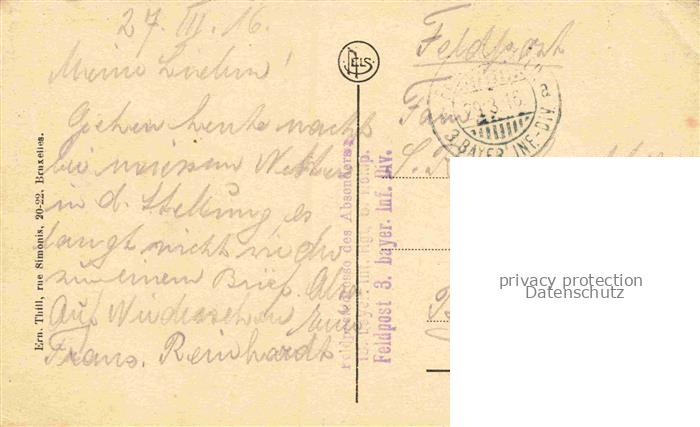 27. III. 16.
Meine Lieben!
Gehen heute nacht
bei miesem Wetter
in d. Stellung, es
langt nicht wieder
zu einem Brief. Also
Auf Wiedersehen Euer
Franz. Reinhardt
Ern. Thill, rue Simonis, 20-22, Bruxelles.
NELS
Feldpostadresse des Absenders:
Feldpost 3. bayer. Inf. Div.
Feldpost
3. BAYER. INF.-DIV. a
Fam
privacy protection
Datenschutz